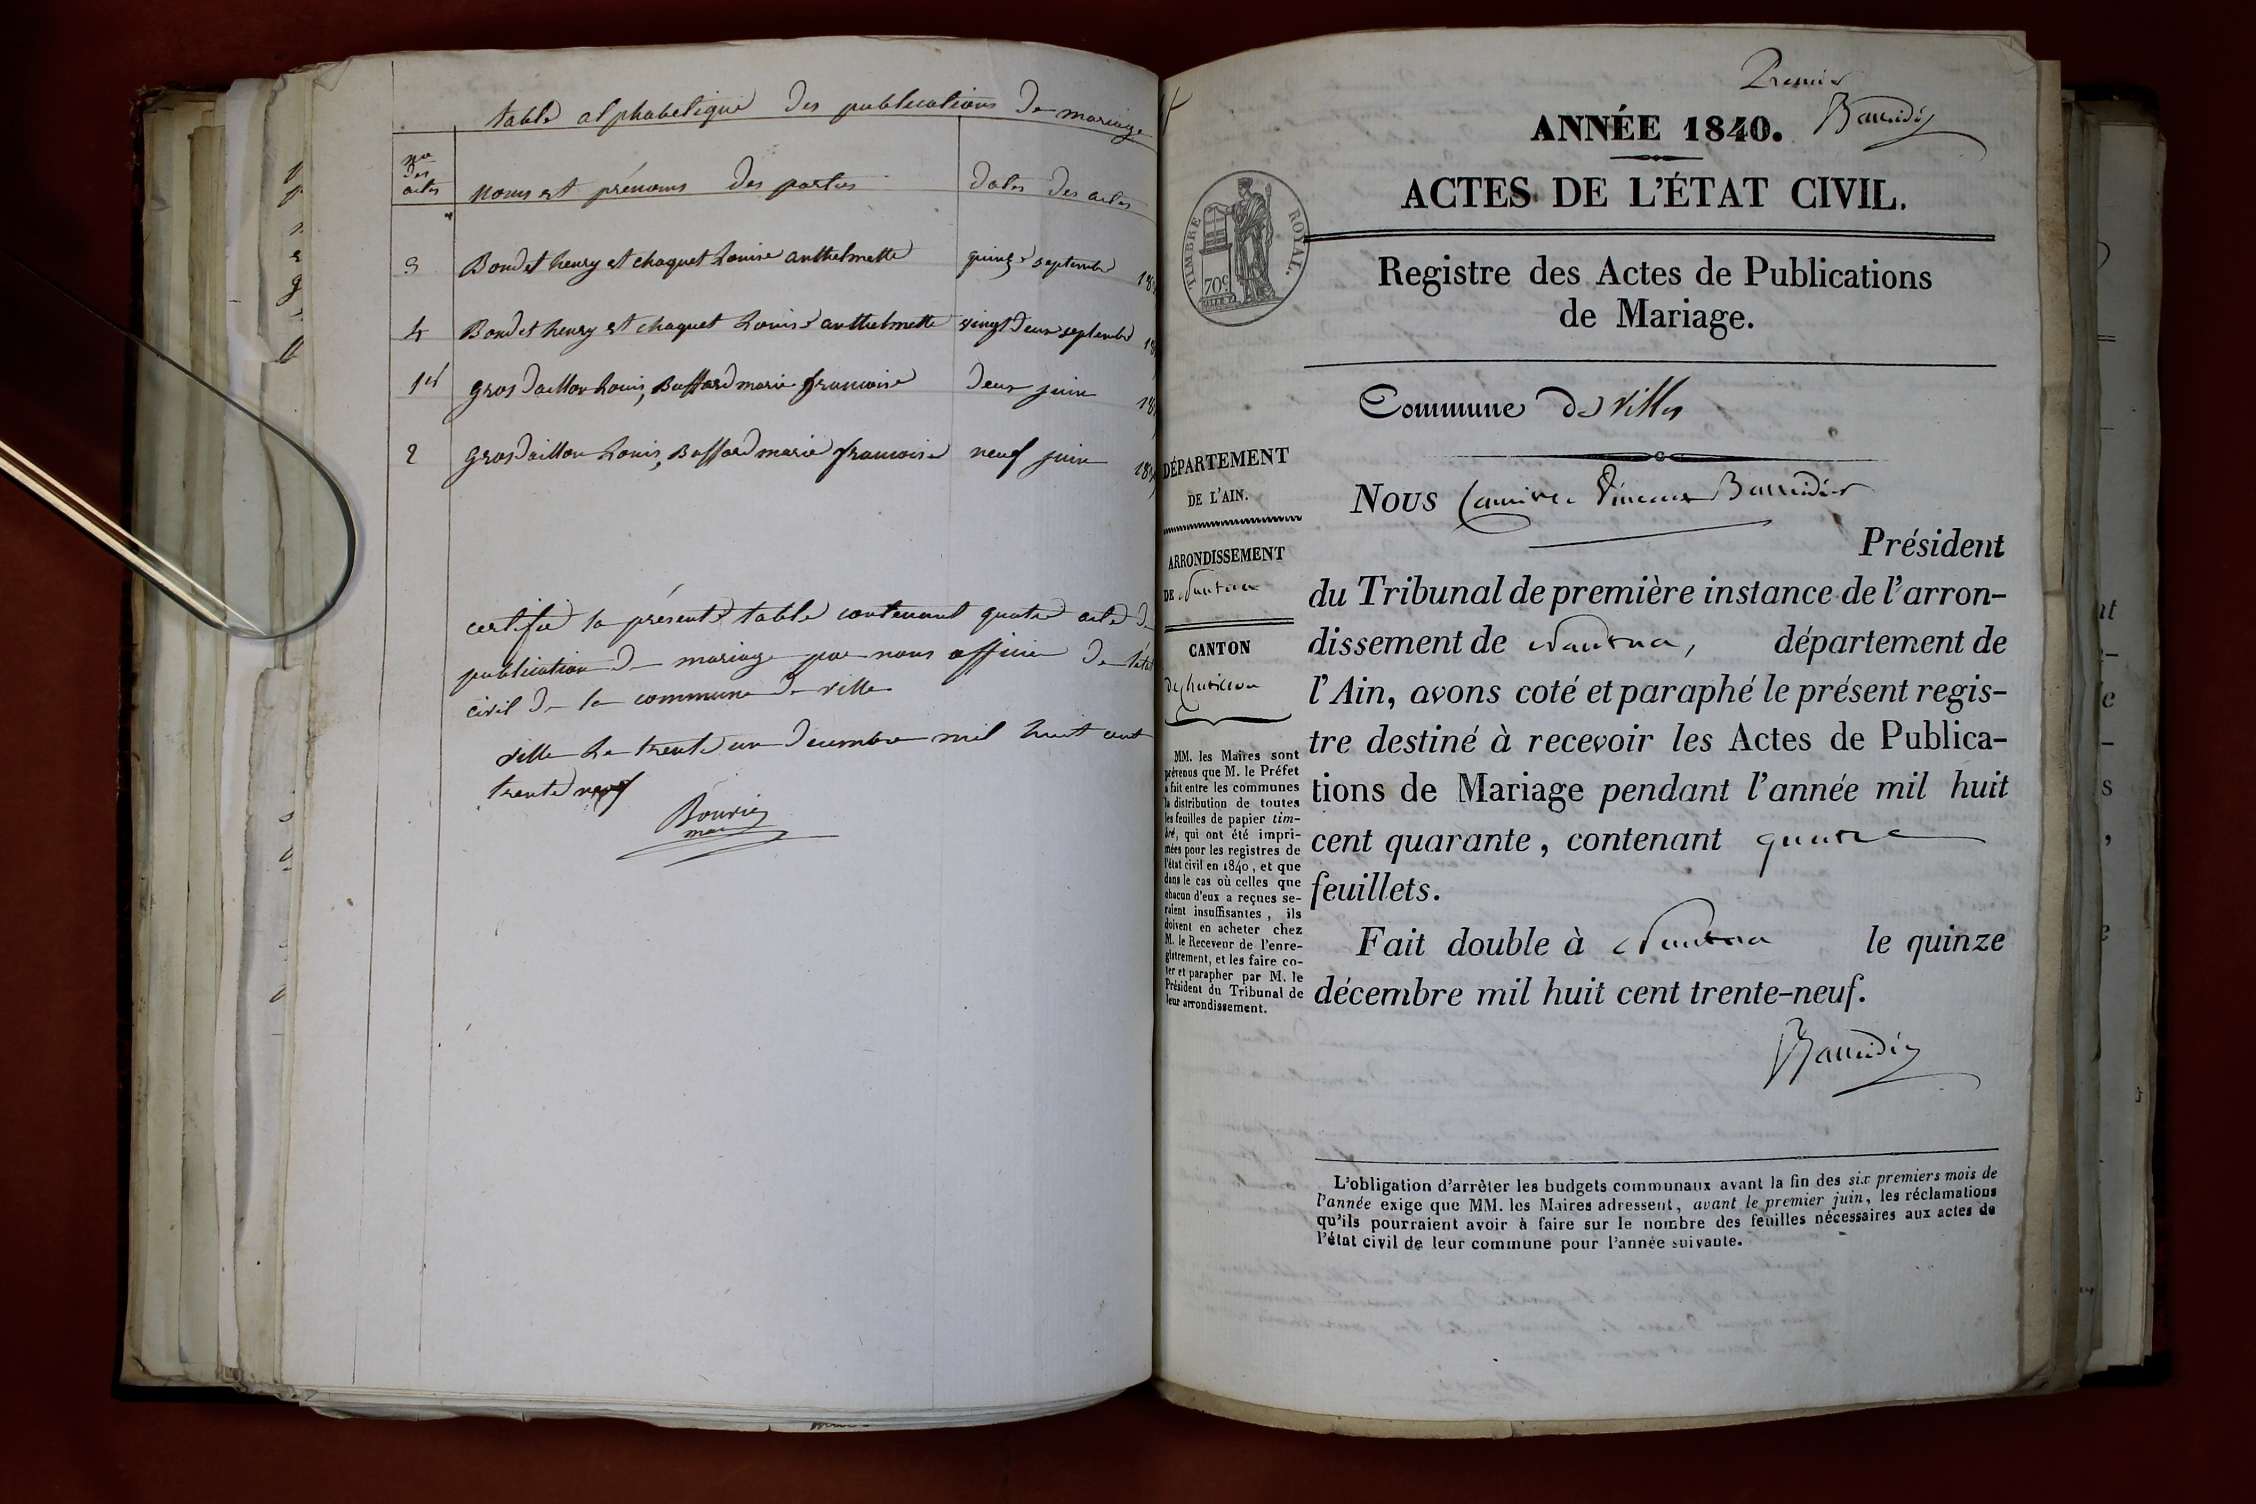 table alphabetique des publications de mariage
no des actes
noms et prénoms des parties
dates des actes
3 Bondet henry et chaquet Louise anthelmette quinze septembre
4 Bondet henry et chaquet Louise anthelmette vingt deux septembre
1er grosdaillon Louis, Buffard marie françoise deux juin
2 grosdaillon Louis, Buffard marie françoise neuf juin
certifié la présente table contenant quatre acte de
publication de mariage par nous officier de l'état
civil de la commune de ville
ville le trente un decembre mil huit cent
trente neuf
Bouvier
maire
Premier
Baudin
ANNÉE 1840.
ACTES DE L'ÉTAT CIVIL.
TIMBRE ROYAL.
70c
Registre des Actes de Publications
de Mariage.
Commune de Villes
DÉPARTEMENT
DE L'AIN.
ARRONDISSEMENT
DE Nantua
CANTON
de chatillon
MM. les Maires sont
prévenus que M. le Préfet
a fait entre les communes
la distribution de toutes
les feuilles de papier tim-
bré, qui ont été impri-
mées pour les registres de
l'état civil en 1840, et que
dans le cas où celles que
chacun d'eux a reçues se-
raient insuffisantes, ils
doivent en acheter chez
M. le Receveur de l'enre-
gistrement, et les faire co-
ter et parapher par M. le
Président du Tribunal de
leur arrondissement.
Nous
Président
du Tribunal de première instance de l'arron-
dissement de Nantua, département de
l'Ain, avons coté et paraphé le présent regis-
tre destiné à recevoir les Actes de Publica-
tions de Mariage pendant l'année mil huit
cent quarante, contenant quatre
feuillets.
Fait double à Nantua le quinze
décembre mil huit cent trente-neuf.
L'obligation d'arrêter les budgets communaux avant la fin des six premiers mois de
l'année exige que MM. les Maires adressent, avant le premier juin, les réclamations
qu'ils pourraient avoir à faire sur le nombre des feuilles nécessaires aux actes de
l'état civil de leur commune pour l'année suivante.